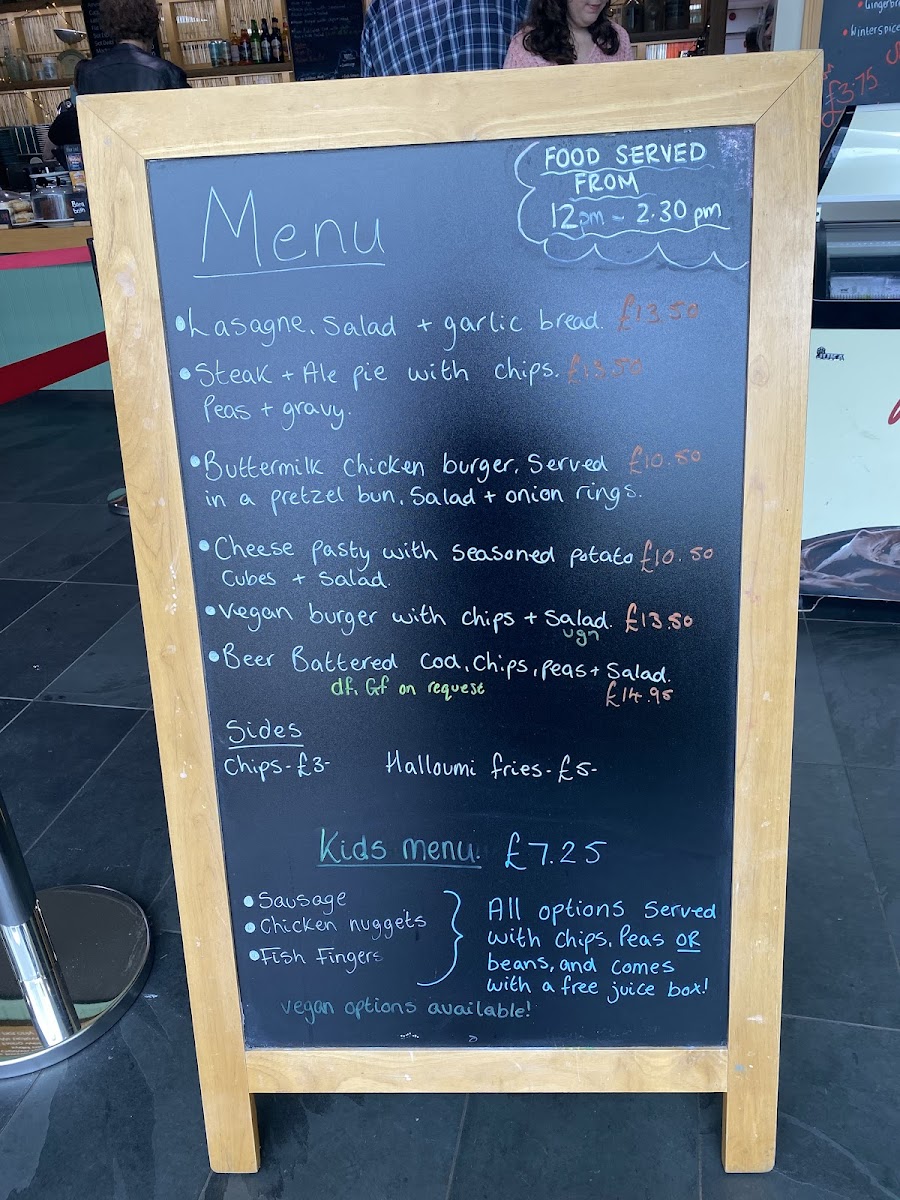 Menu
FOOD SERVED
FROM
12pm - 2.30pm
• Lasagne. Salad + garlic bread. £13.50
• Steak + Ale pie with chips. £13.50
Peas + gravy.
• Buttermilk chicken burger. Served £10.50
in a pretzel bun. Salad + onion rings.
• Cheese pasty with seasoned potato £10.50
cubes + Salad.
• Vegan burger with chips + Salad. £13.50
vgn
• Beer Battered Cod, Chips, peas + Salad.
df. Gf on request £14.95
Sides
Chips - £3- Halloumi fries - £5-
Kids menu. £7.25
• Sausage
• Chicken nuggets
• Fish Fingers
All options Served
with Chips. Peas OR
beans, and comes
with a free juice box!
vegan options available!
Winterspice
£3.75